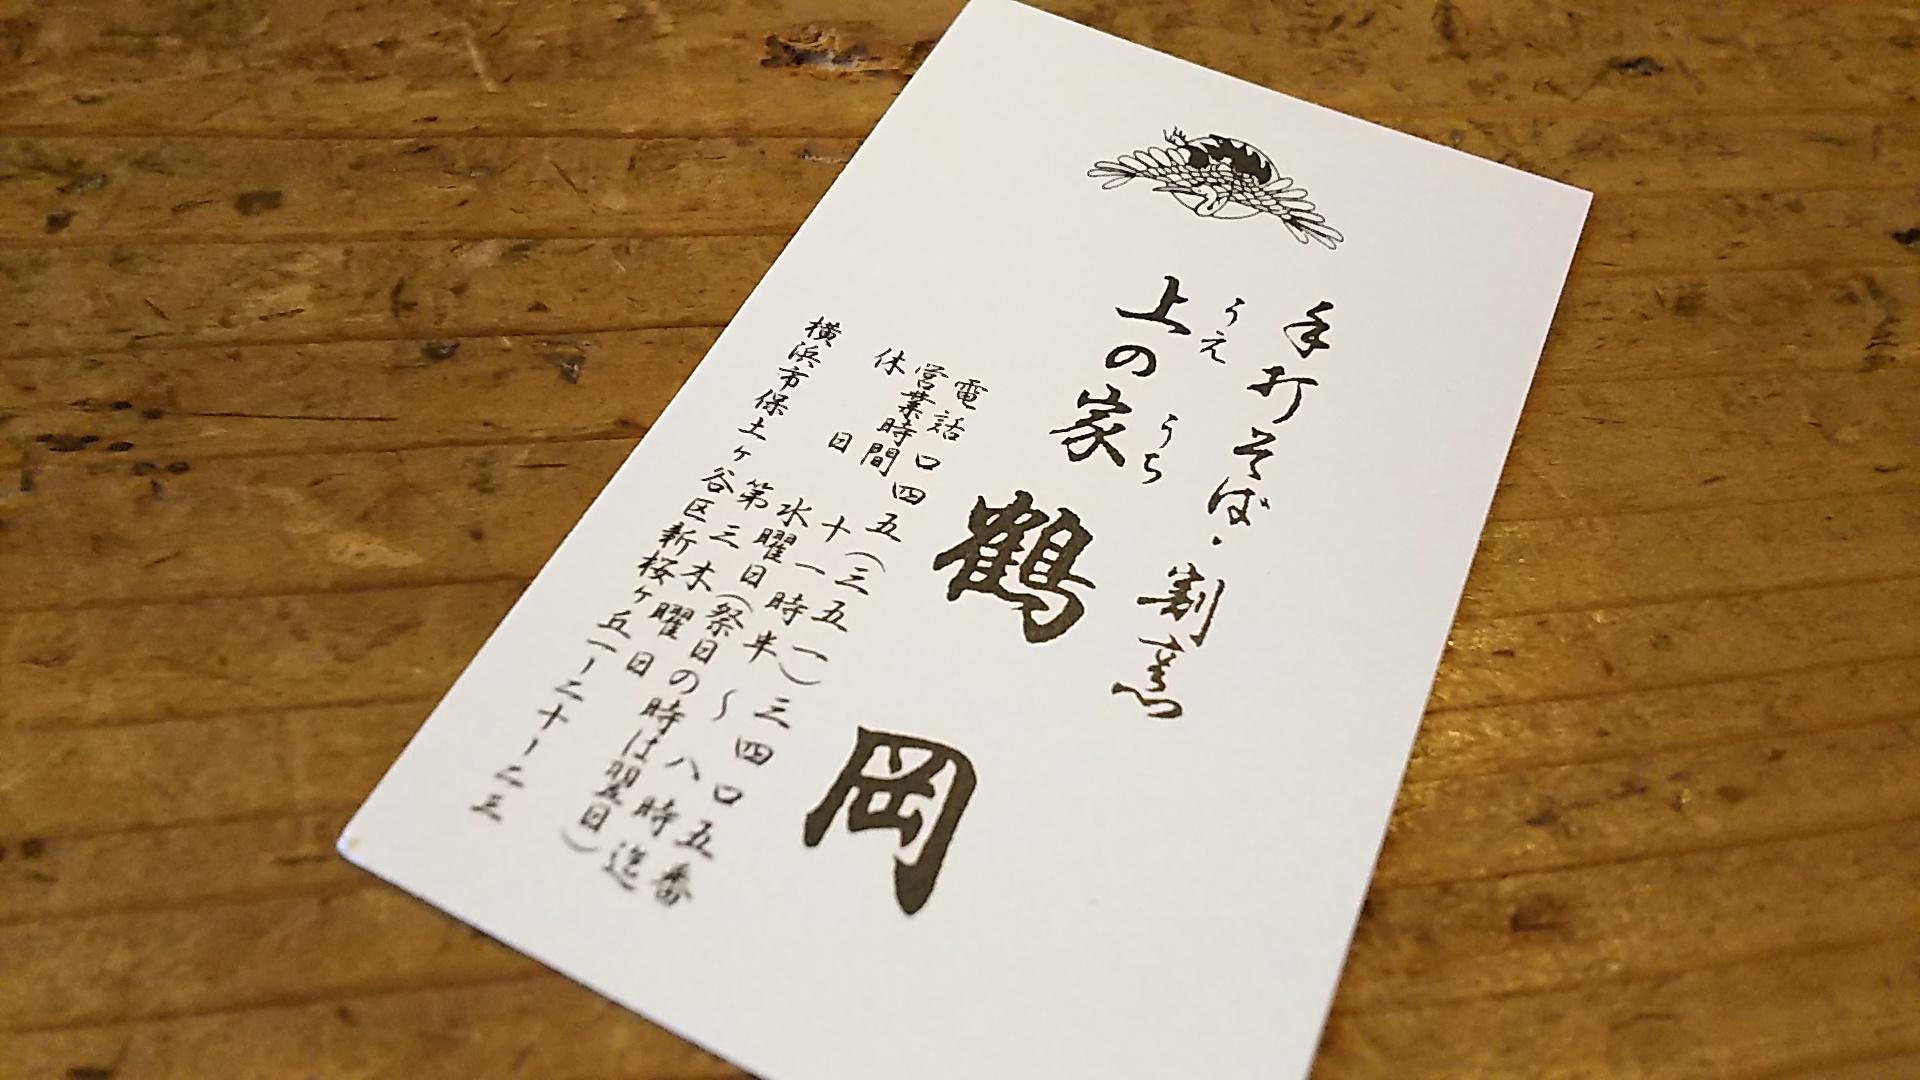 手打そば・割烹
うえ うち
上の家 鶴岡
電話 〇四五(三五一)三四〇五番
営業時間 十一時半〜八時迄
休日 水曜日(祭日の時は翌日)
第三木曜日
横浜市保土ヶ谷区新桜ヶ丘一ー二十ー二三